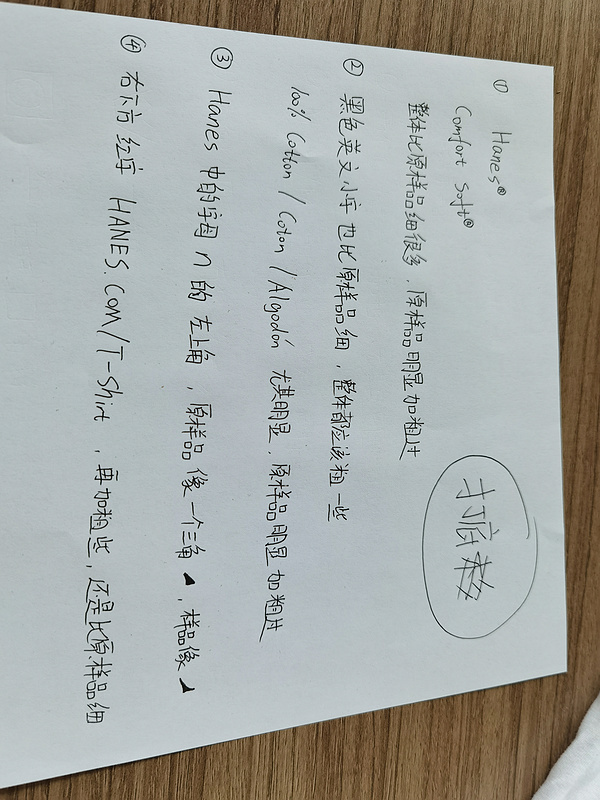 ① Hanes®
Comfort Soft®
整体比原样品细很多，原样品明显加粗过
打底
② 黑色英文小字也比原样品细，整体都应该粗一些
100% Cotton / Coton / Algodón 尤其明显，原样品明显加粗过
③ Hanes 中的字母 n 的左上角，原样品像一个三角◢，样品像◢
④ 右下方红字 HANES.COM/T-Shirt，再加粗些，还是比原样品细